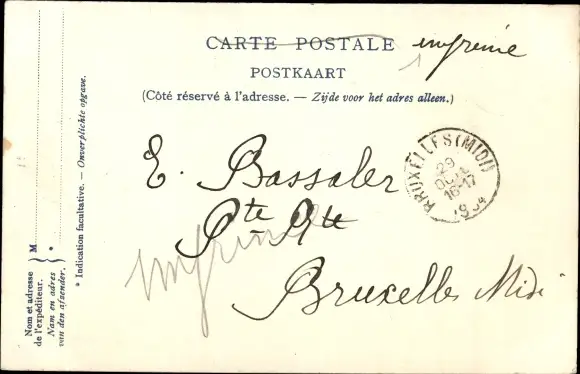 CARTE POSTALE imprimé
POSTKAART
(Côté réservé à l'adresse. — Zijde voor het adres alleen.)
E. Bassaler
Pte Rte
imprimé
Bruxelles Midi
BRUXELLES (MIDI)
29
16-17
Nom et adresse de l'expéditeur. } M
Naam en adres van den afzender. } *
* Indication facultative. — Onverplichte opgave.